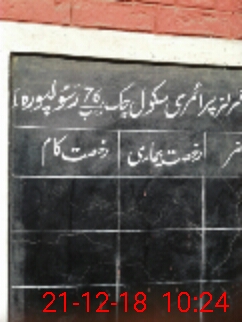 گرلز پرائمری سکول چک 76 ر ب رسولپورہ
رخصت بیماری رخصت کام
21-12-18 10:24